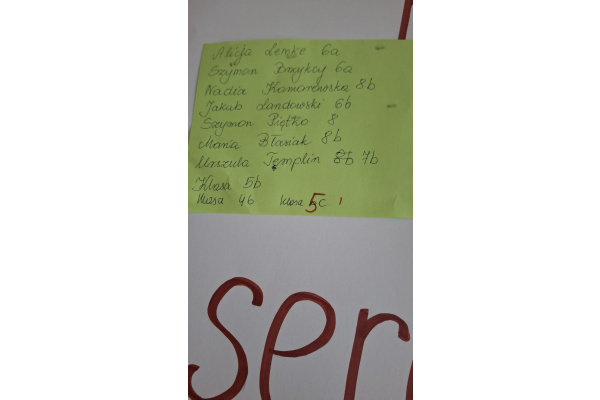 Alicja Lemke 6a
Szymon Brzykcy 6a
Nadia Komorowska 8b
Jakub Landowski 6b
Szymon Piętko 8
Maria Błasiak 8b
Urszula Templin 8b 7b
Klasa 5b
Klasa 4b Klasa 5c
ser